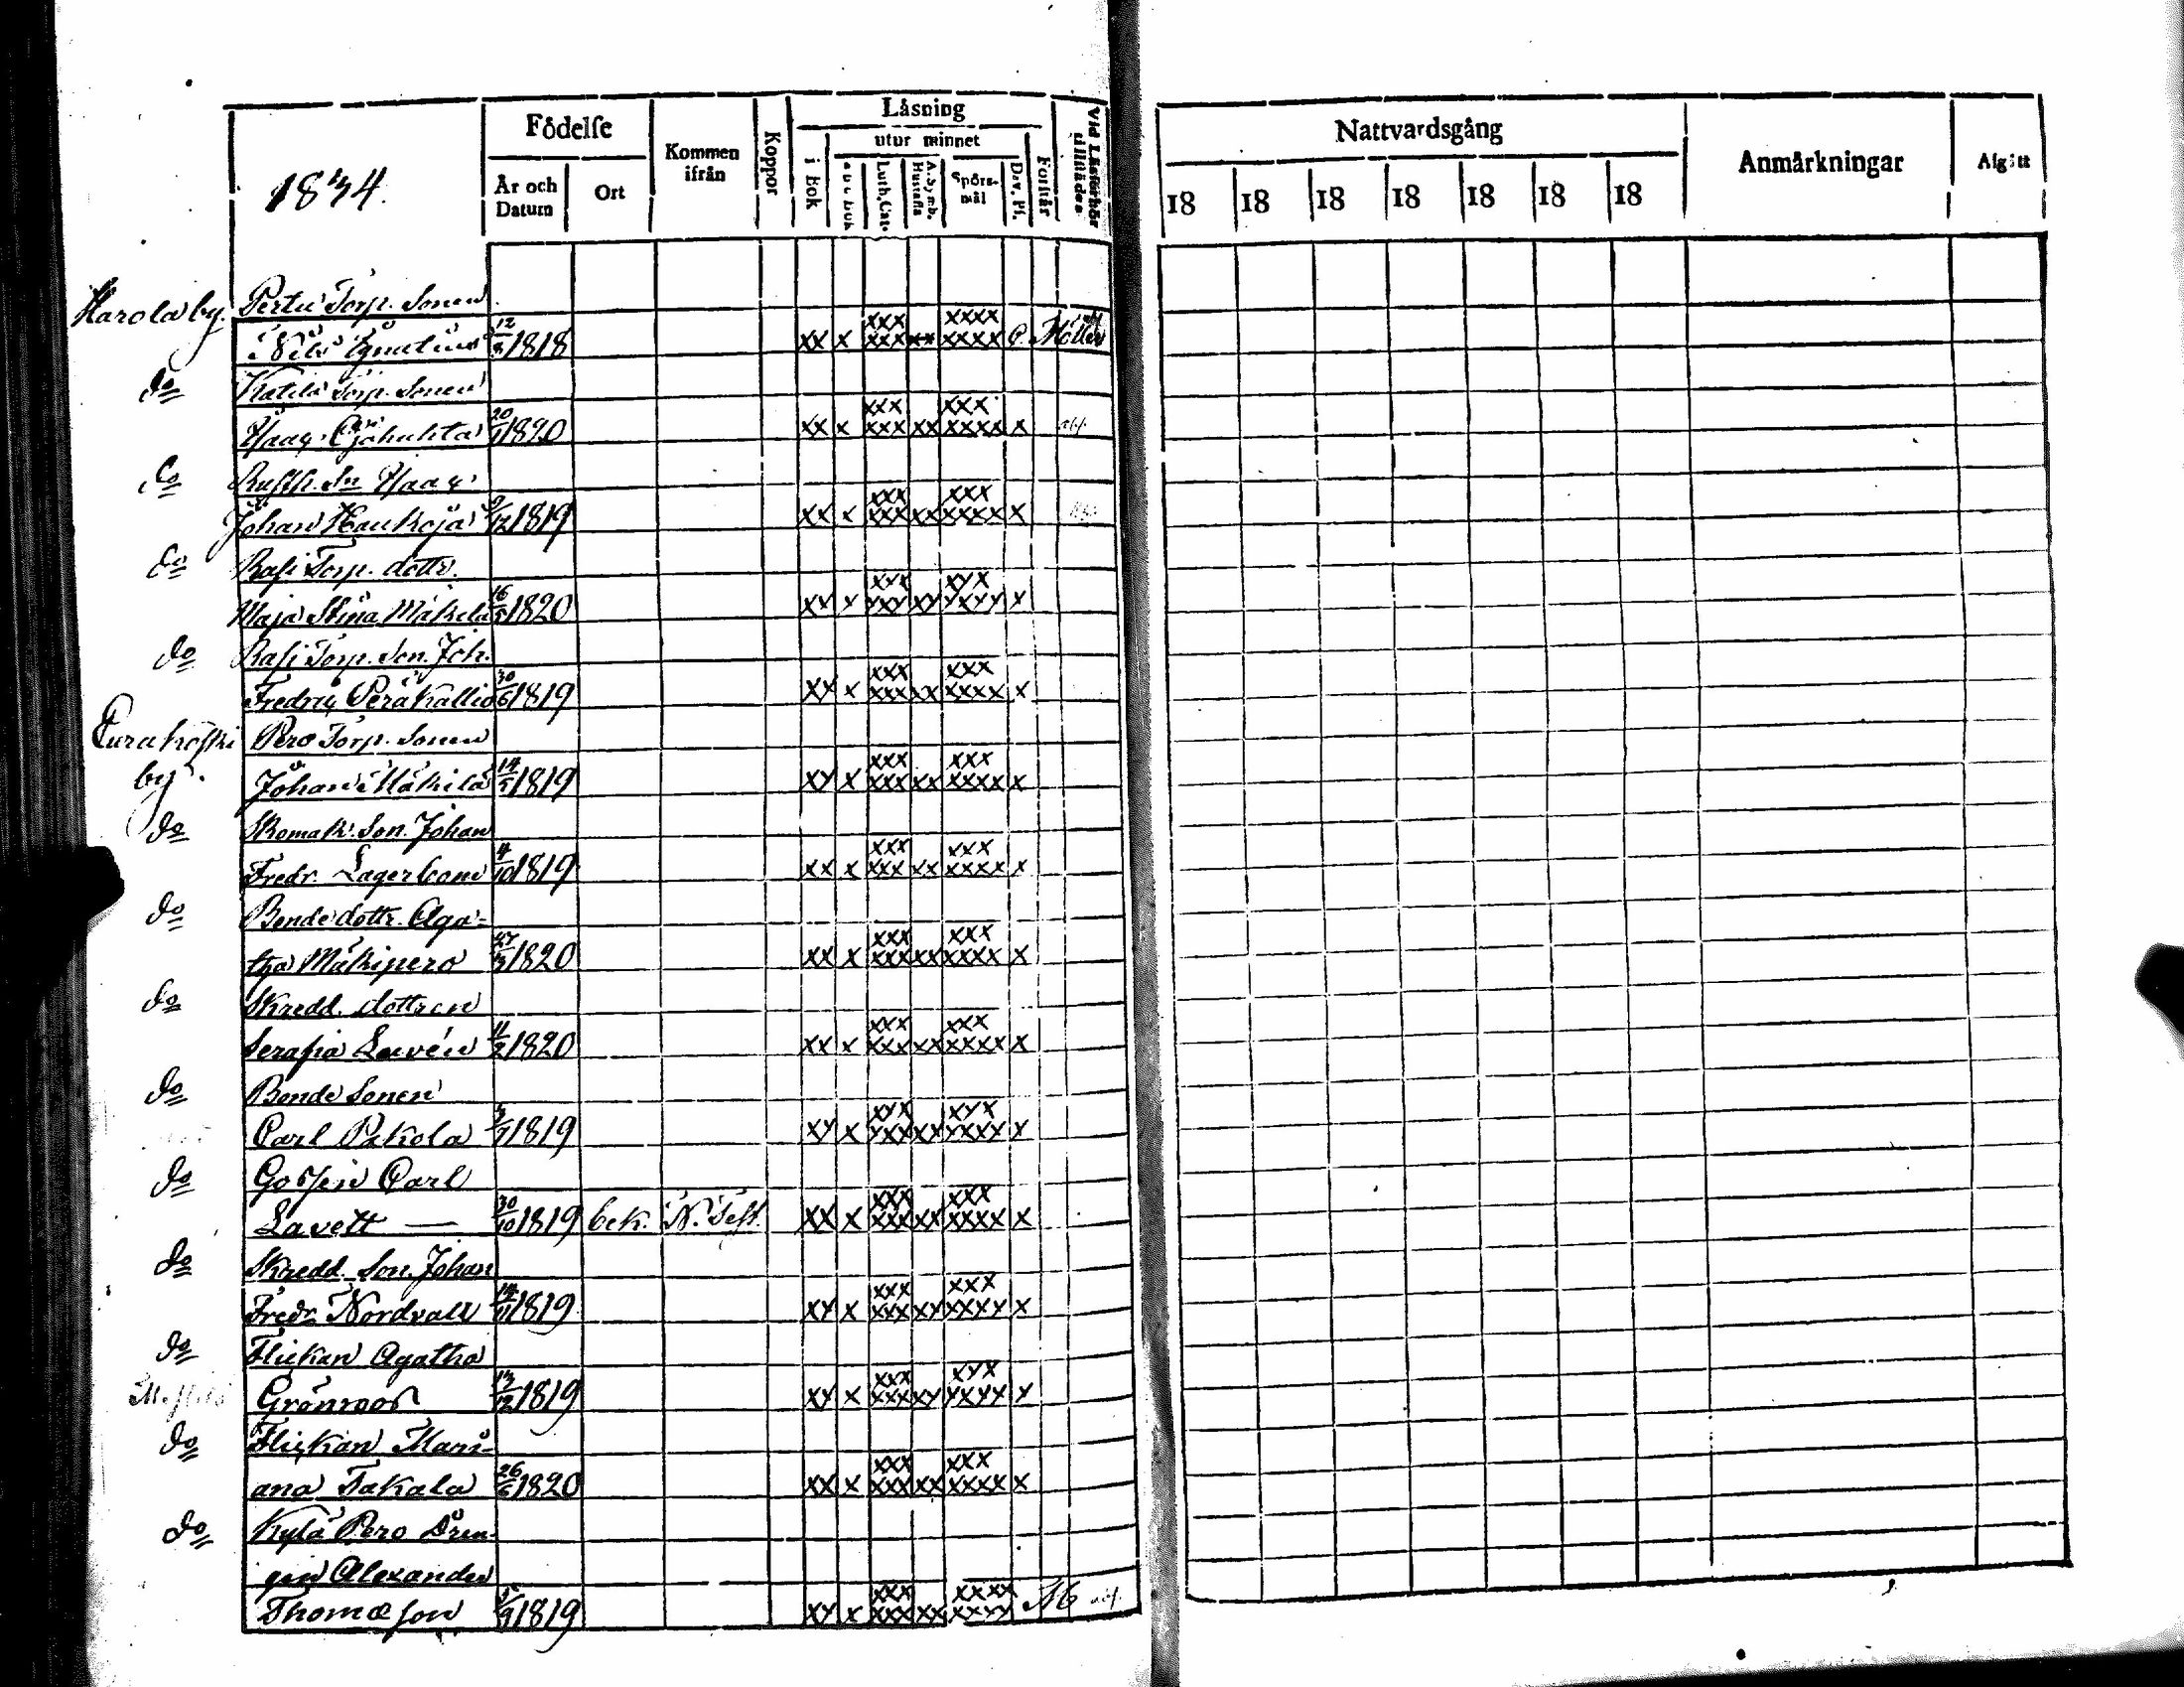 Födelse
Kommen ifrån
Koppor
Läsning
utur minnet
Vid Läsförhör tillstädes
Nattvardsgång
Anmärkningar
Afgått
1834.
År och Datum
Ort
i Bok
Luth. Cat.
A. Symb. Hustafla
Spörs-mål
Dav. Ps.
Förstår
18 18 18 18 18 18 18
Harola by. Pertu Torp. Sonen
Nils Ignatius 12/8 1818 xx x xxx xxx xx xxxx xxxx
do Katila Torp. Sonen
20/1 1820 xx x xxx xxx xx xxx xxxx x
do
Johan Haukoja 9/12 1819 xx x xxx xxx xx xxx xxxx x
do Rasi Torp. dottr.
Maja Stina Mäkelä 16/5 1820 xx x xxx xxx xx xxx xxxx x
do Rasi Torp. Son. Joh.
Fredrik Peräkallio 30/6 1819 xx x xxx xxx xx xxx xxxx x
Eurakoski Pero Torp. Sonen
by. Johan Mäkilä 14/5 1819 xx x xxx xxx xx xxx xxxx x
do Skomak. Son. Johan
Fredr. Lagerbom 4/10 1819 xx x xxx xxx xx xxx xxxx x
do Bonde dottr. Aga-
tha Mäkipero 27/3 1820 xx x xxx xxx xx xxx xxxx x
do Skredd. dottren
Serafia Lavén 11/2 1820 xx x xxx xxx xx xxx xxxx x
do Bonde Sonen
Carl Pakola 1819 xx x xxx xxx xx xxx xxxx x
do Gossen Carl
Lavett — 30/10 1819 bek. N. Test. xx x xxx xxx xx xxx xxxx x
do Skredd. Son. Johan
Fredr. Nordvall 14/11 1819 xx x xxx xxx xx xxx xxxx x
do Flickan Agatha
Grönroos 13/12 1819 xx x xxx xxx xx xxx xxxx x
do Flickan Mari-
ana Takala 26/6 1820 xx x xxx xxx xx xxx xxxx x
do Kylä Pero Dren-
gen Alexander
Thomasson 1819 xx x xxx xxx xx xxxx xxxx